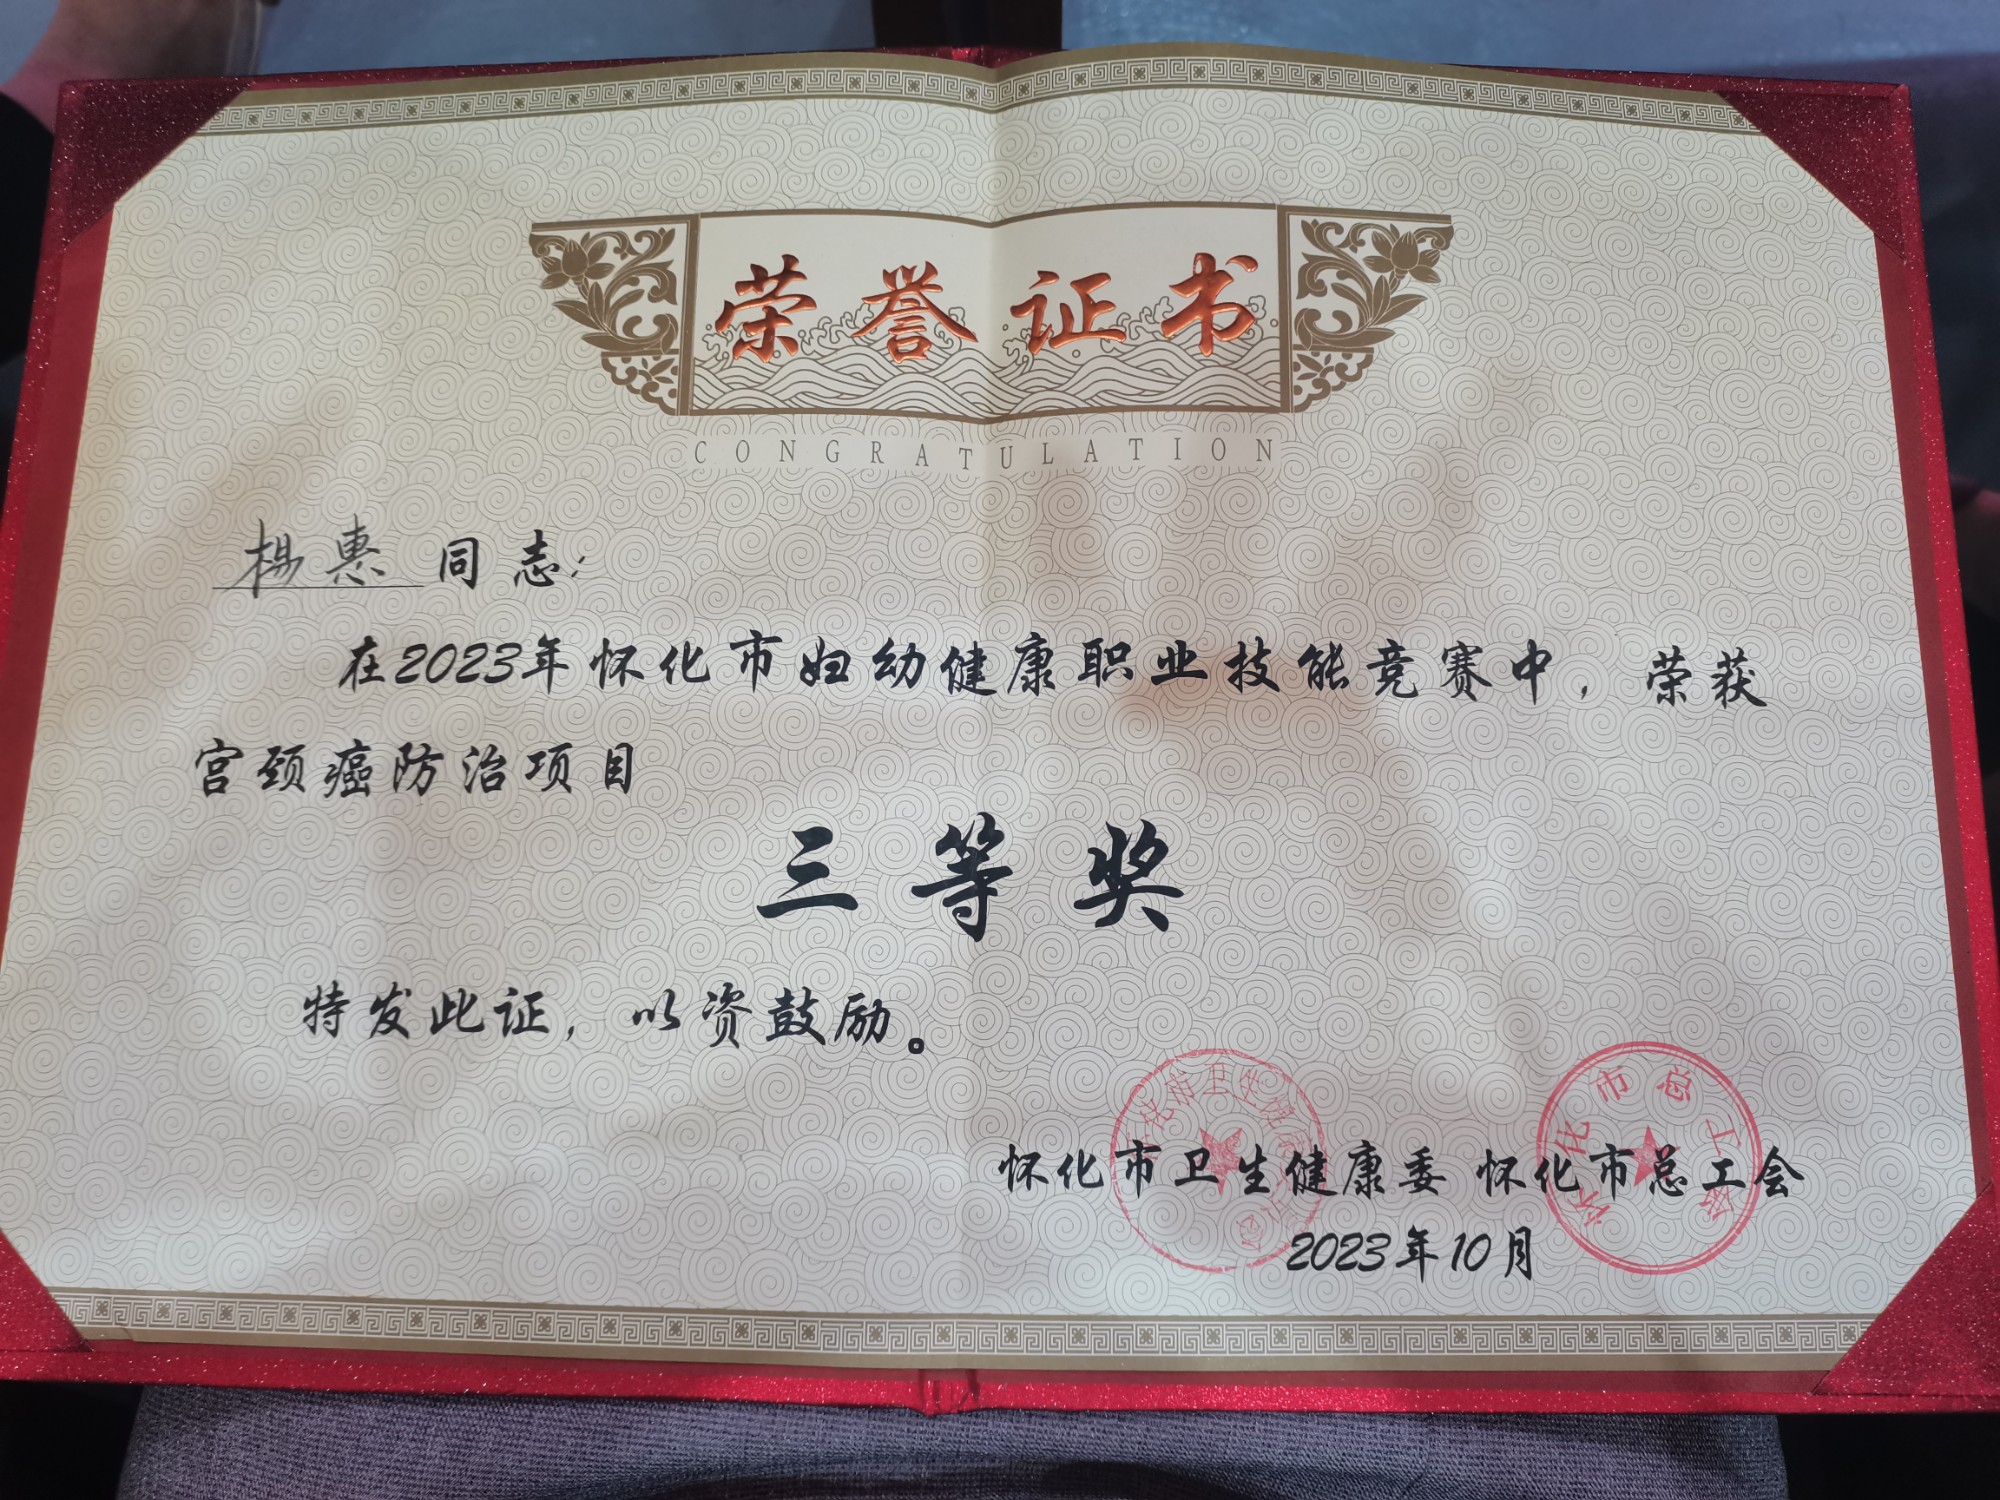 荣誉证书
CONGRATULATION
杨惠同志:
在2023年怀化市妇幼健康职业技能竞赛中，荣获
宫颈癌防治项目
三等奖
特发此证，以资鼓励。
怀化市卫生健康委 怀化市总工会
2023年10月
怀化市卫生健康委员会
怀化市总工会